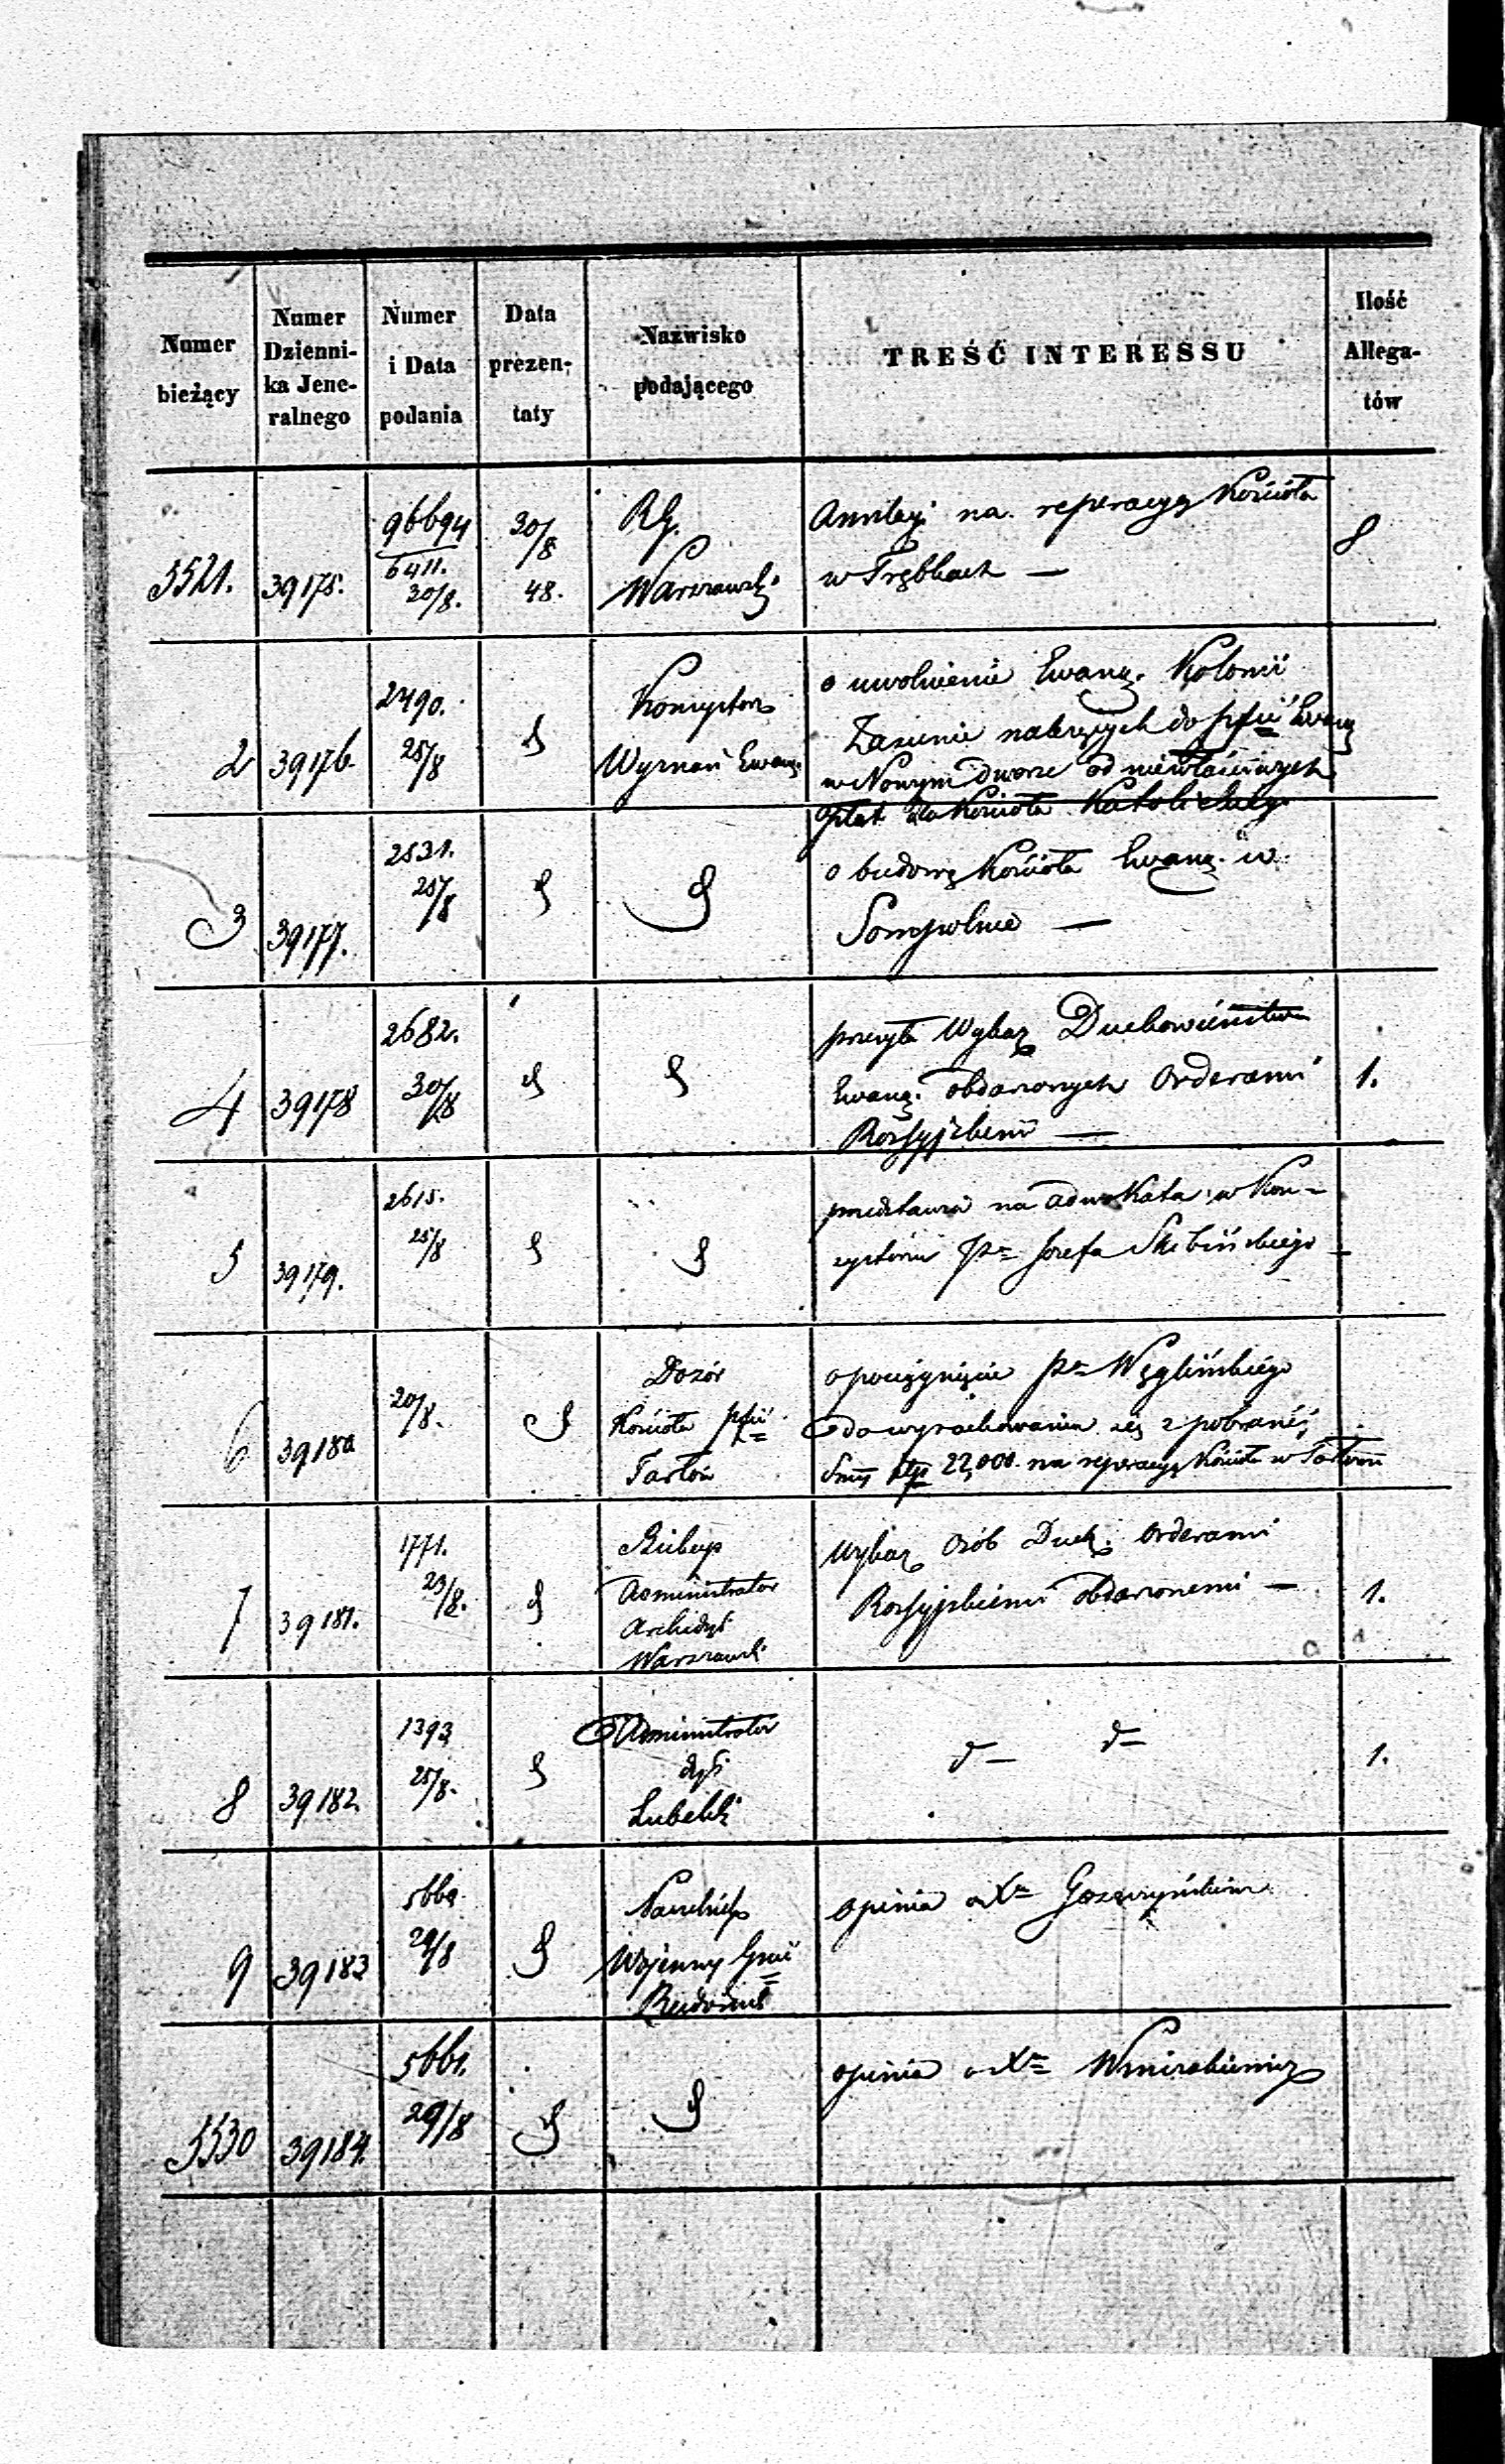 Numer bieżący
Numer Dzienni-
ka Jene-
ralnego
Numer i Data podania
Data prezen-
taty
Nazwisko podającego
TREŚĆ INTERESSU
Ilość Allega-
tów
5521. 39175. 96694
6411.
30/8. 30/8
48. RG.
Warszawski
na reperacyą Kościoła
w Trębkach —
8
2 39176. 2490.
25/8
Konsystorz
Wyznań Ewang.
o uwolnienie Ewang. Kolonii
należących do pfii Ewang
w Nowym dworze od niewłaściwych
opłat dla Kościoła Katolickiego
3 39177. 2531.
25/8
o budowę Kościoła Ewang. w
Sompolnie —
4 39178 2682.
30/8
przesyła Wykaz Duchowieństwa
Ewang. obdarzonych Orderami
Rossyjskiemi —
1.
5 39179. 2615.
25/8
przedstawia na adwokata w Kon-
systorzu Pa Józefa Skibińskiego —
6 39180 20/8.
Dozór
Kościoła pfii
Tarłów
o pociągnięcie Pa Węglińskiego
do wyrachowania się z pobranéj
Summy złp 22,000. na reperacyą Kościoła w Tarłowie
7 39181. 1771.
23/8.
Biskup
Administrator
Archidyi
Warszawski
Wykaz Osób Duch. Orderami
Rossyjskiemi obdarzonemi —
1.
8 39182. 1393
25/8.
Administrator
dyi
Lubelski
d— d—
1.
9 39183 5669
29/8
Naczelnik
Wojenny Gnii
Radomsk
opinia o Xu
5530 39184. 5661.
29/8
opinia o Xu